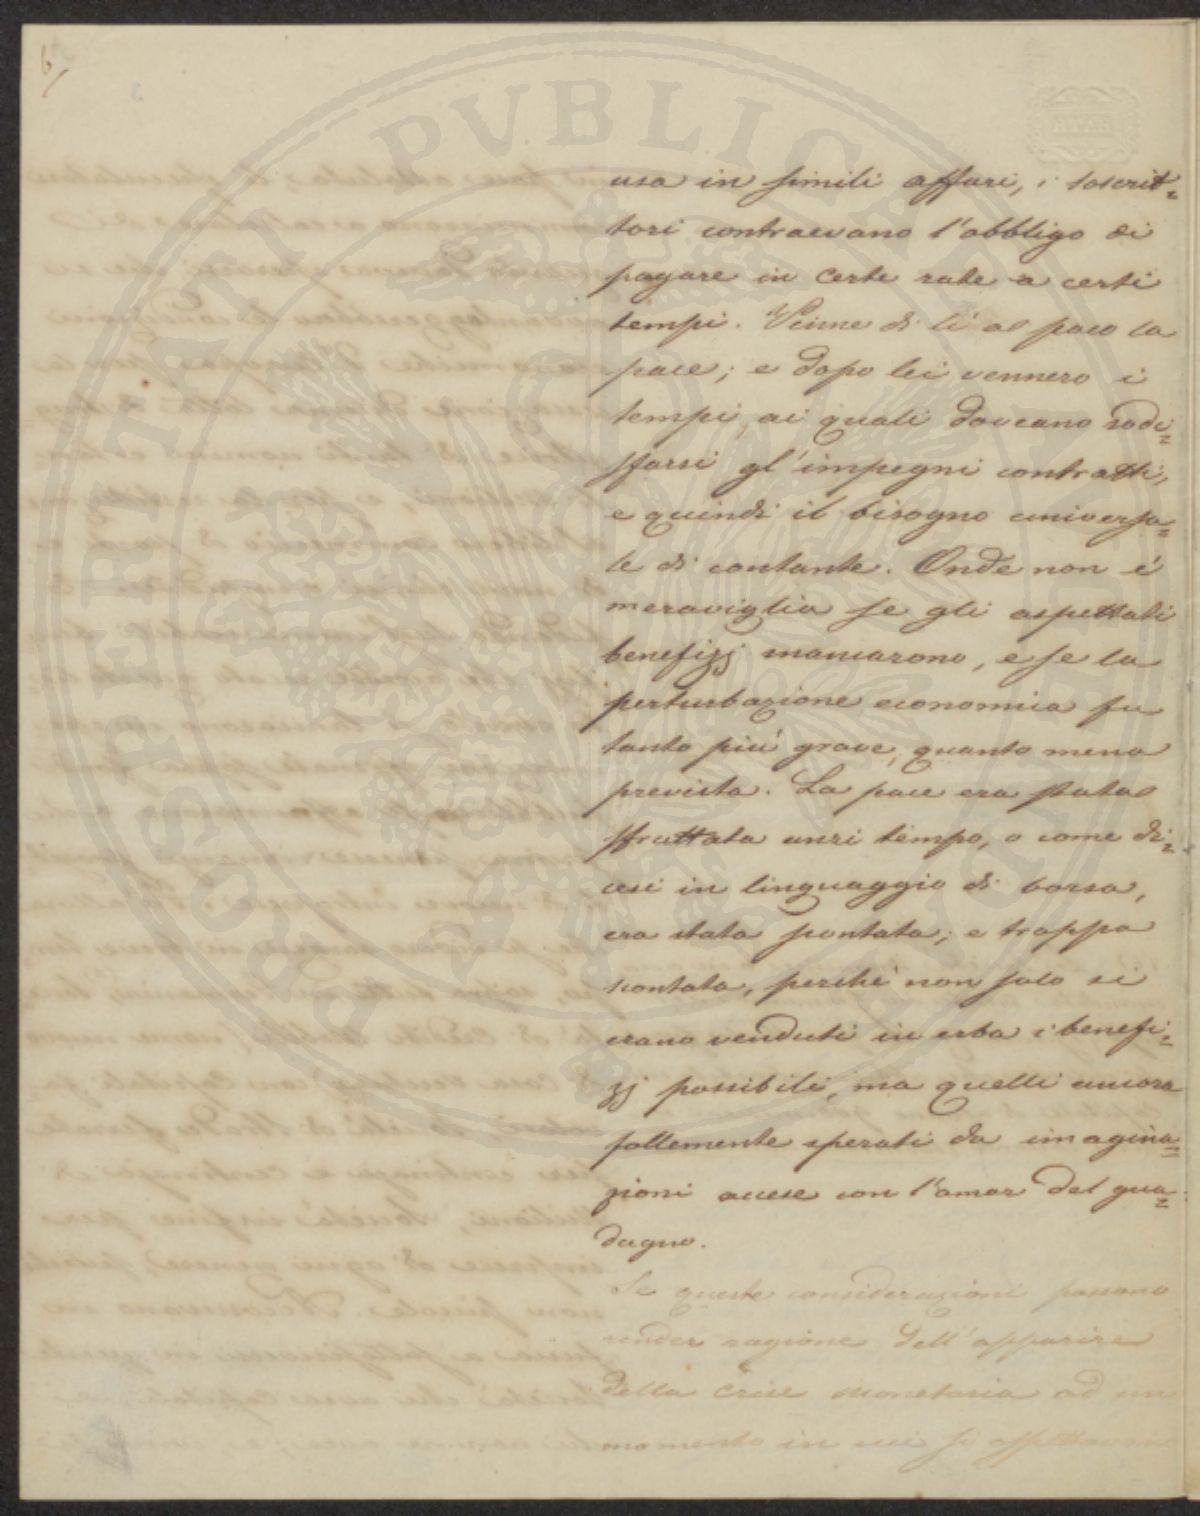 6/
PROSPERITATI PVBLICAE
BATH
usa in simili affari, i soscrit=
tori contraevano l'obbligo di
pagare in certe rate a certi
tempi. Venne di lì al poco la
pace; e dopo lei vennero i
tempi, ai quali doveano sodi=
sfarsi gl'impegni contratti,
e quindi il bisogno universa=
le di contante. Onde non é
meraviglia se gli aspettati
benefizj mancarono, e se la
perturbazione economica fu
tanto più grave, quanto meno
prevista. La pace era stata
sfruttata anzi tempo, o come di=
cesi in linguaggio di borsa,
era stata scontata; e troppo
scontata, perchè non solo si
erano venduti in erba i benefi=
zj possibili, ma quelli ancora
follemente sperati da imagina=
zioni accese con l'amor del gua=
dagno.
Se queste considerazioni possono
render ragione dell'apparire
della crise monetaria ad un
momento in cui si aspettavano